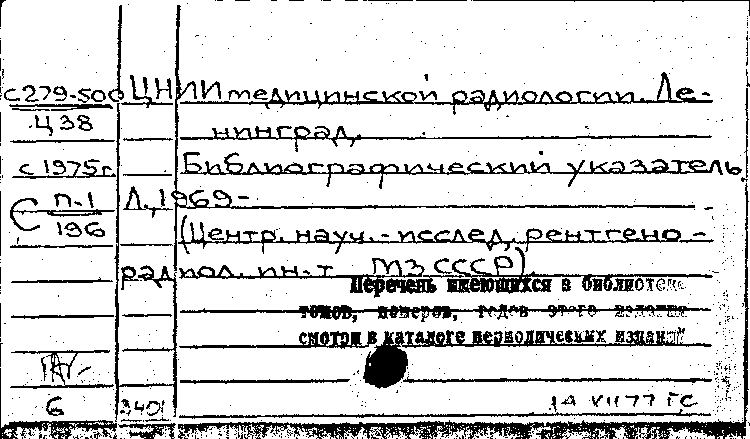 с279-500 ЦНИИ медицинской радиологии. Ле-
Ц38 нинград.
с 1975г. Библиографический указатель.
П-1 Л., 1969-
С 196
(Центр. науч.-исслед. рентгено-
радиол. ин-т МЗ СССР).
Перечень имеющихся в библиотеке
томов, номеров, годов этого издания
смотри в каталоге периодических изданий
6 3401 14 VII 77 ГС